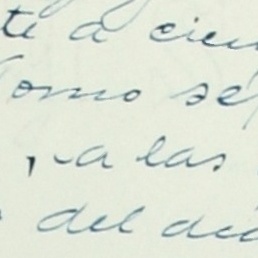 te a cien
Tomo se
, a las
del dia